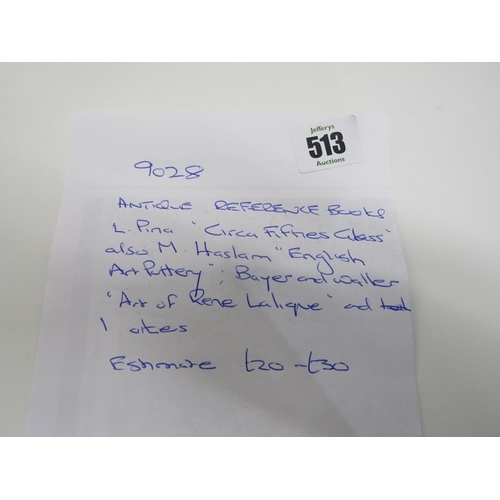 Jefferys
513
Auctions
9028
ANTIQUE REFERENCE Books
L. Pina "Circa Fifties Glass"
also M. Haslam "English
Art Pottery"; Bayer and Waller
"Art of Rene Lalique" and
1 others
Estimate £20-£30